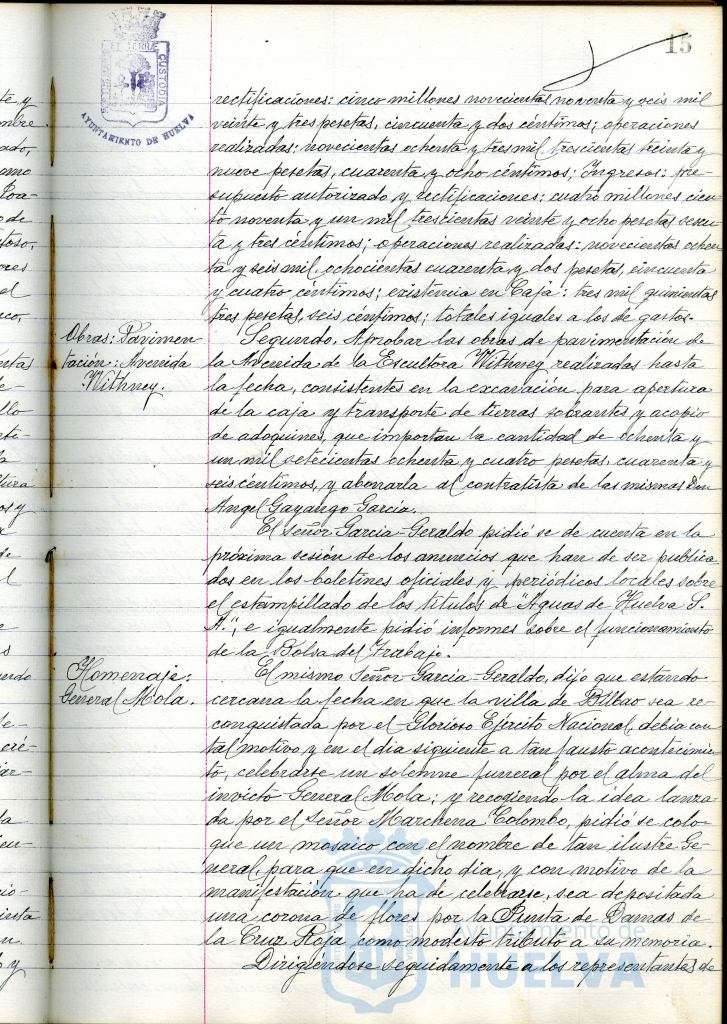 15
AYUNTAMIENTO DE HUELVA
CUSTODIA
rectificaciones: cinco millones novecientas noventa y seis mil
veinte y tres pesetas, cincuenta y dos céntimos; operaciones
realizadas: novecientas ochenta y tres mil, trescientas treinta y
nueve pesetas, cuarenta y ocho céntimos; Ingresos: pre-
supuesto autorizado y rectificaciones: cuatro millones cien-
to noventa y un mil trescientas veinte y ocho pesetas sesen-
ta y tres céntimos; operaciones realizadas: novecientas ochen-
ta y seis mil, ochocientas cuarenta y dos pesetas, cincuenta
y cuatro céntimos; existencia en Caja: tres mil quinientas
tres pesetas, seis céntimos; totales iguales a los de gastos.
Obras: Pavimen-
tación: Avenida
Withney.
Segundo. Aprobar las obras de pavimentación de
la Avenida de la Escultora Withney realizadas hasta
la fecha, consistentes en la excavación para apertura
de la caja y transporte de tierras sobrantes y acopio
de adoquines, que importan la cantidad de ochenta y
un mil setecientas ochenta y cuatro pesetas, cuarenta y
seis céntimos, y abonarla al contratista de las mismas Don
Angel Gayango García.
El señor Garcia-Geraldo pidió se de cuenta en la
próxima sesión de los anuncios que han de ser publica-
dos en los boletines oficiales y periódicos locales sobre
el estampillado de los títulos de "Aguas de Huelva S.
A.", e igualmente pidió informes sobre el funcionamiento
de la Bolsa del Trabajo.
Homenaje:
General Mola.
El mismo señor Garcia-Geraldo, dijo que estando
cercana la fecha en que la villa de Bilbao sea re-
conquistada por el Glorioso Ejército Nacional, debía con
tal motivo y en el dia siguiente a tan fausto acontecimien-
to, celebrarse un solemne funeral por el alma del
invicto General Mola; y recogiendo la idea lanza-
da por el señor Marchena Colombo, pidió se colo-
que un mosaico con el nombre de tan ilustre Ge-
neral, para que en dicho dia, y con motivo de la
manifestación que ha de celebrarse, sea depositada
una corona de flores por la Junta de Damas de
la Cruz Roja como modesto tributo a su memoria.
Dirigiéndose seguidamente a los representantes de
Ayuntamiento de
HUELVA